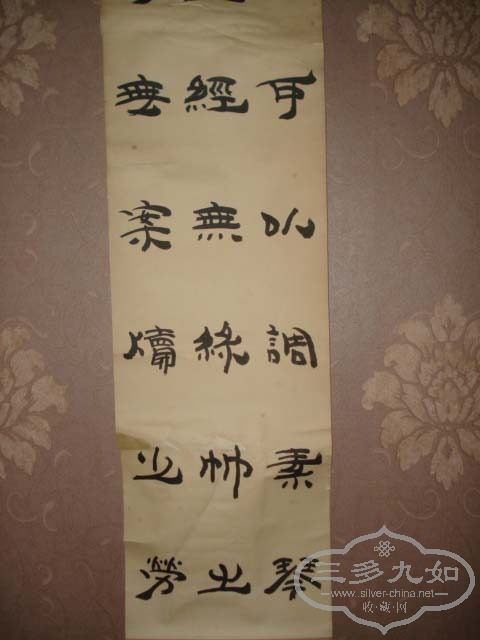 可以調素琴
經無絲竹之
無案牘之勞
三多九如
www.silver-china.net
收·藏·网